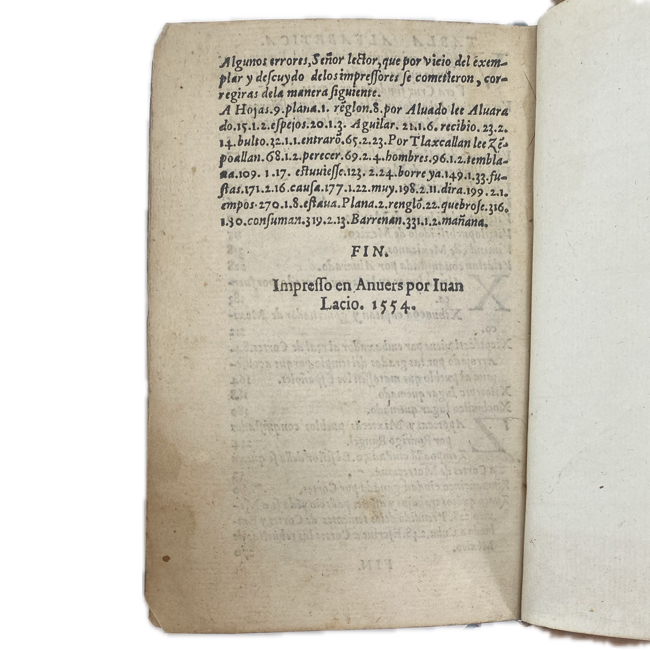 Algunos errores, Señor lector, que por vicio del exem-
plar y descuydo delos impressores se cometieron, cor-
regiras dela manera siguiente.
A Hojas.9.plana.1. rẽglon.8. por Aluado lee Aluara
do.15.1.2.espejos.20.1.3. Aguilar. 21.1.6. recibio. 23.2.
14.bulto.32.1.1.entrarõ.65.2.23.Por Tlaxcallan lee Zẽ-
poallan.68.1.2.perecer.69.2.4.hombres.96.1.2.tembla-
ua.109. 1.17. estuuiesse.123. 2.24.borre ya.149.1.33.fu-
stas.171.2.16.causa.177.1.22.muy.198.2.11.dira.199.2.1.
empos.270.1.8.estaua.Plana.2.renglõ.22.quebrose.316.
1.30.consuman.319.2.13.Barrenan.331.1.2.mañana.
FIN.
Impresso en Anuers por Iuan
Lacio. 1554.